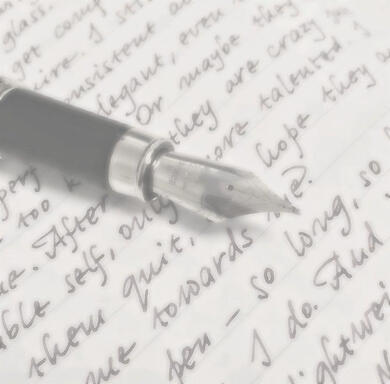 glass.
get comp
ire. I sti
nsistent ac
elegant, even
Or maybe they
they are crazy
ore talented
hope they a
pers
too k
e. After
able self, only
them quit,
me towards me?
pen – so long, so
I do. And
ightwei